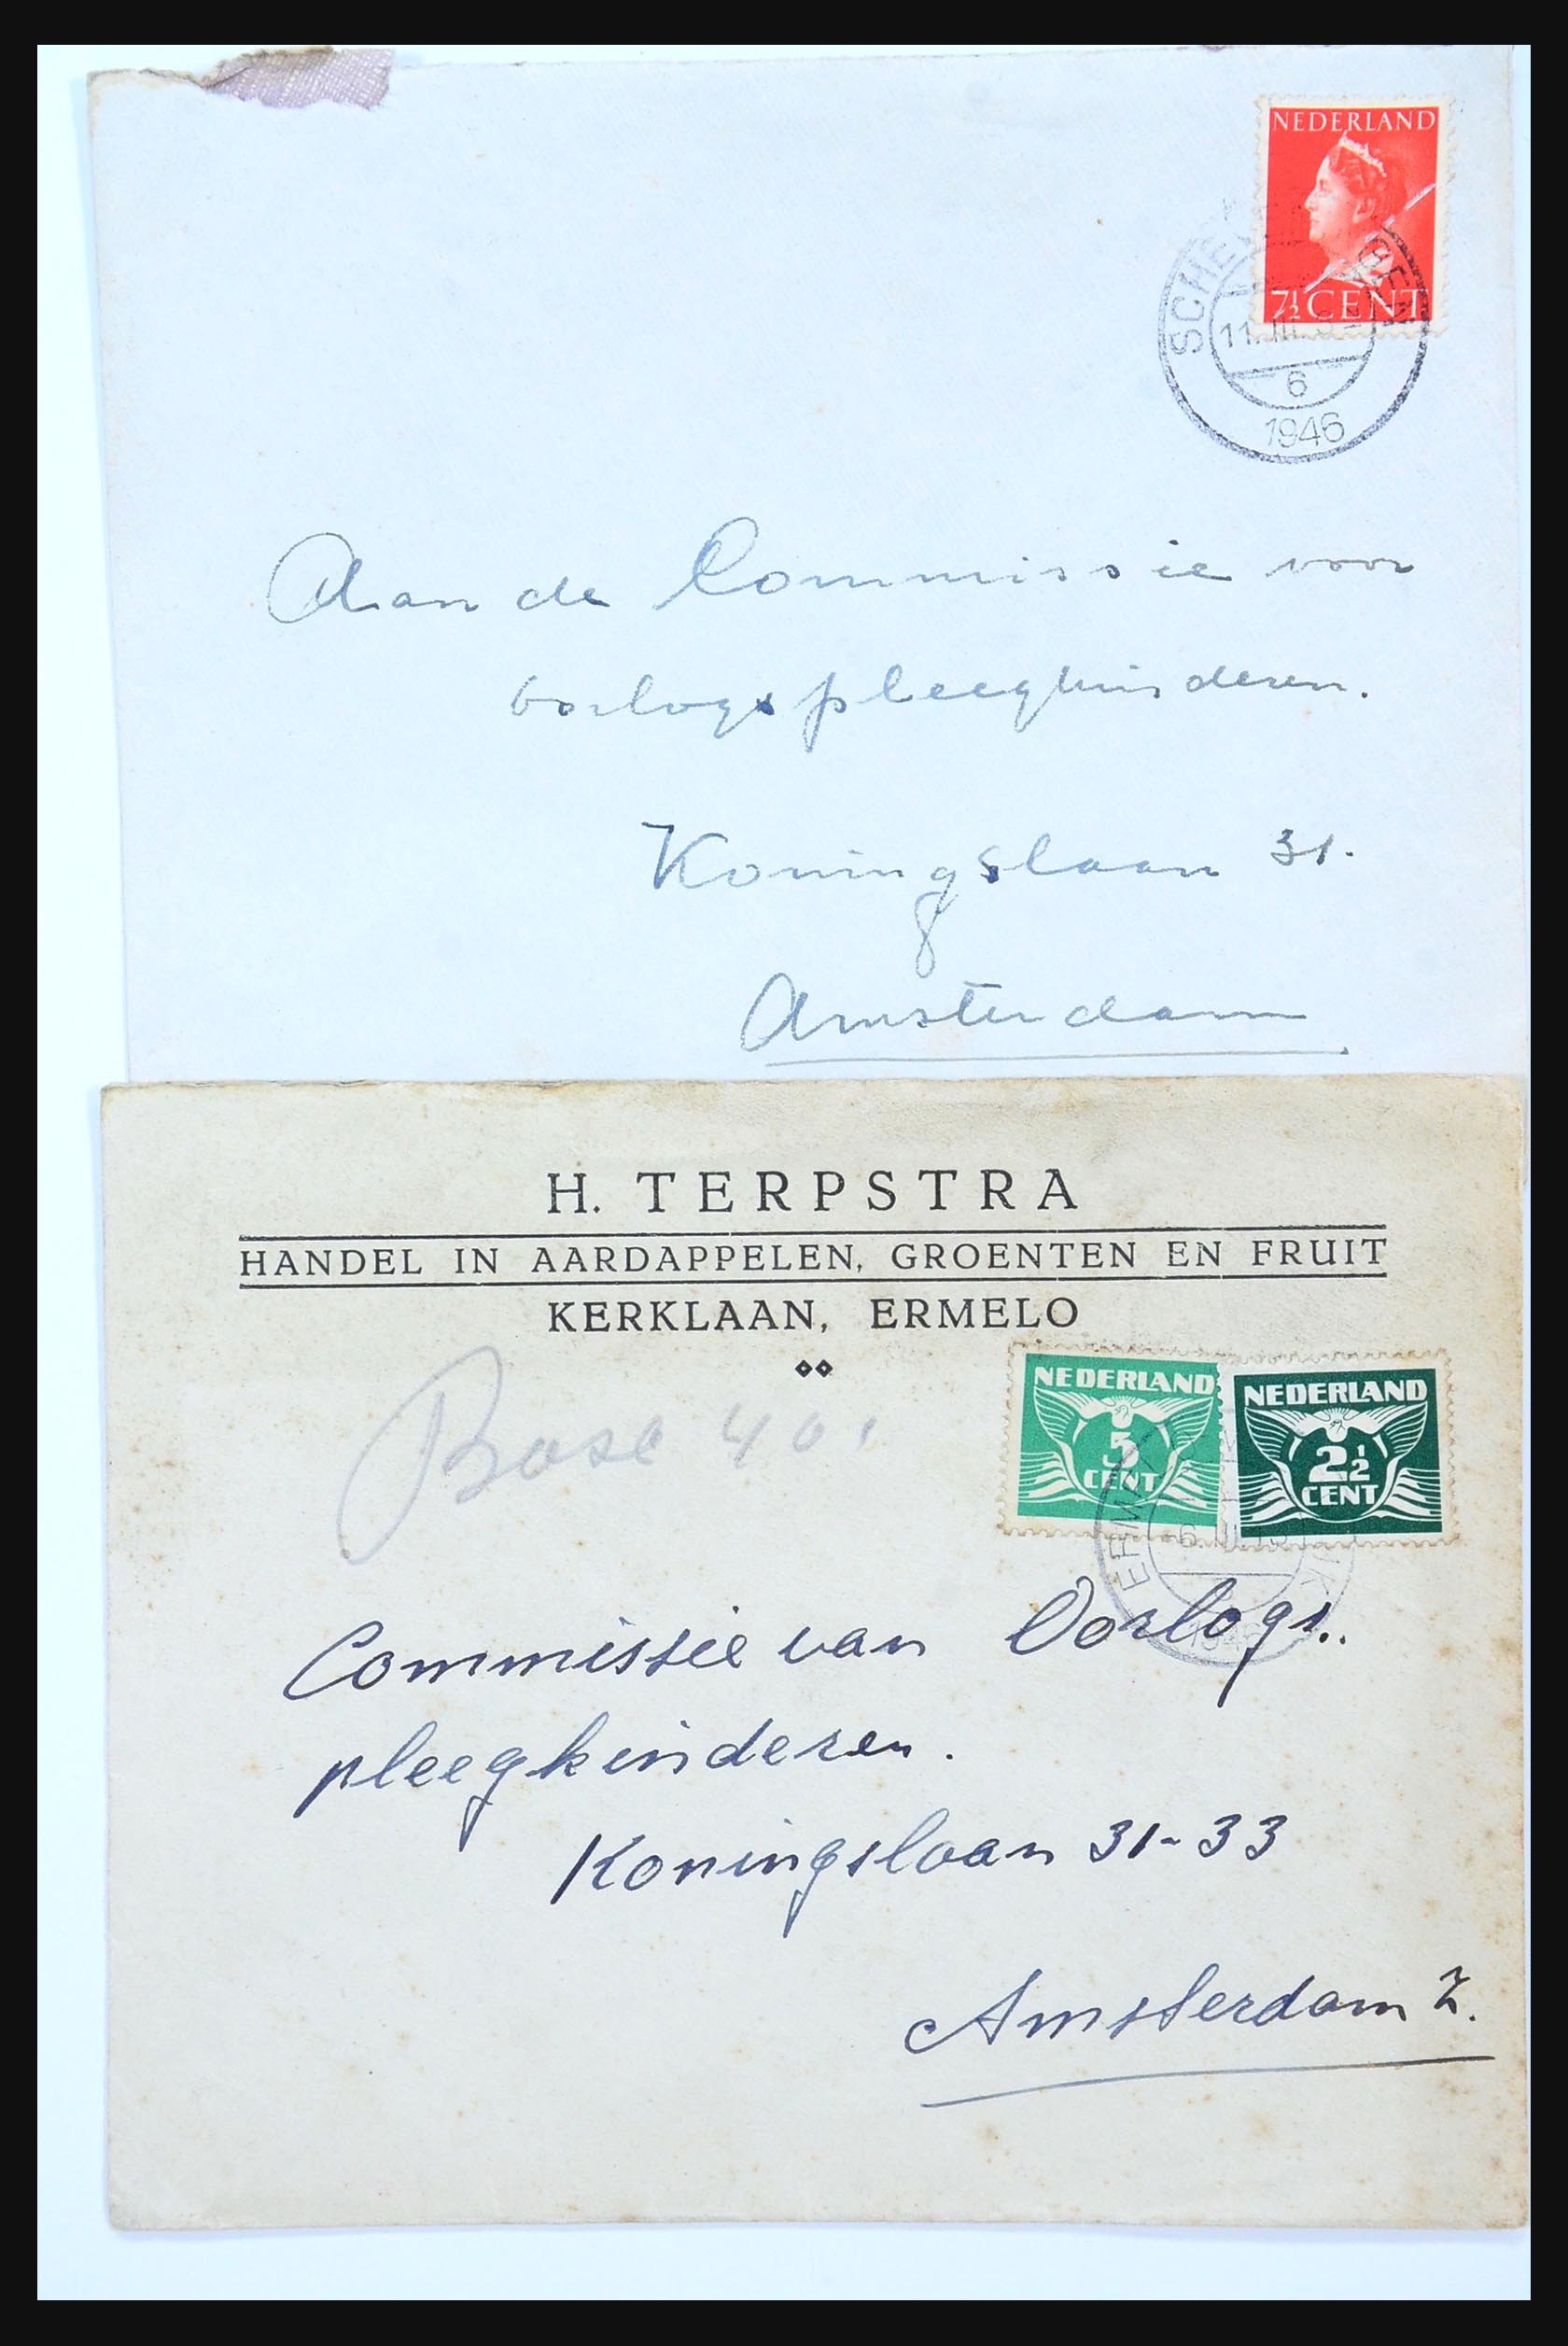 NEDERLAND
7½ CENT
11.III
6
1946
Aan de Commissie voor
oorlogspleegkinderen.
Koningslaan 31.
Amsterdam
H. TERPSTRA
HANDEL IN AARDAPPELEN, GROENTEN EN FRUIT
KERKLAAN, ERMELO
NEDERLAND
5
CENT
NEDERLAND
2½
CENT
Commissie van Oorlogs..
pleegkinderen.
Koningslaan 31-33
Amsterdam Z.